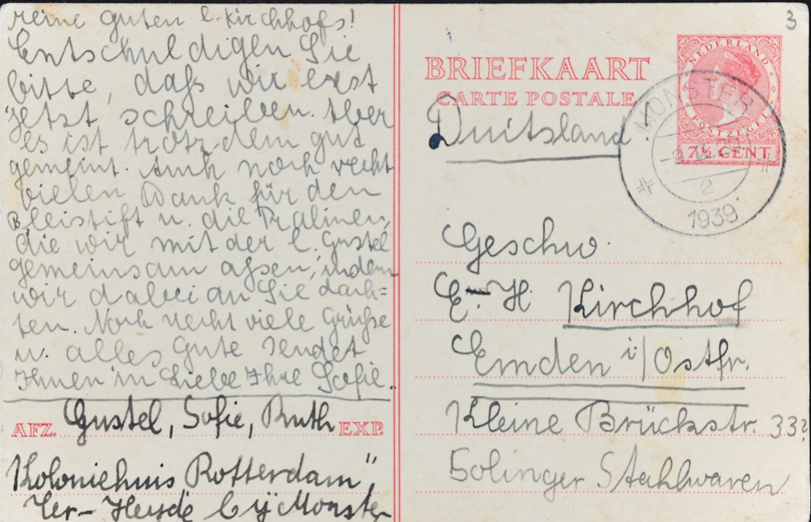 meine guten l. Kirchhofs!
Entschuldigen Sie
bitte, daß wir erst
jetzt schreiben. Aber
es ist trotzdem gut
gemeint. Auch noch recht
vielen Dank für den
Bleistift u. die Pralinen,
die wir mit der l. Gustel
gemeinsam aßen, indem
wir dabei an Sie dach=
ten. Noch recht viele Grüße
u. alles Gute sendet
Ihnen in Liebe Ihre Sofie.
AFZ. Gustel, Sofie, Ruth EXP.
"Koloniehuis Rotterdam"
Ter-Heyde bij Monster
3
BRIEFKAART
CARTE POSTALE
NEDERLAND
POSTZEGEL
7½ CENT
MONSTER
2
1939
Duitsland
Geschw.
E. H. Kirchhof
Emden i/Ostfr.
Kleine Brückstr. 33
Solinger Stahlwaren